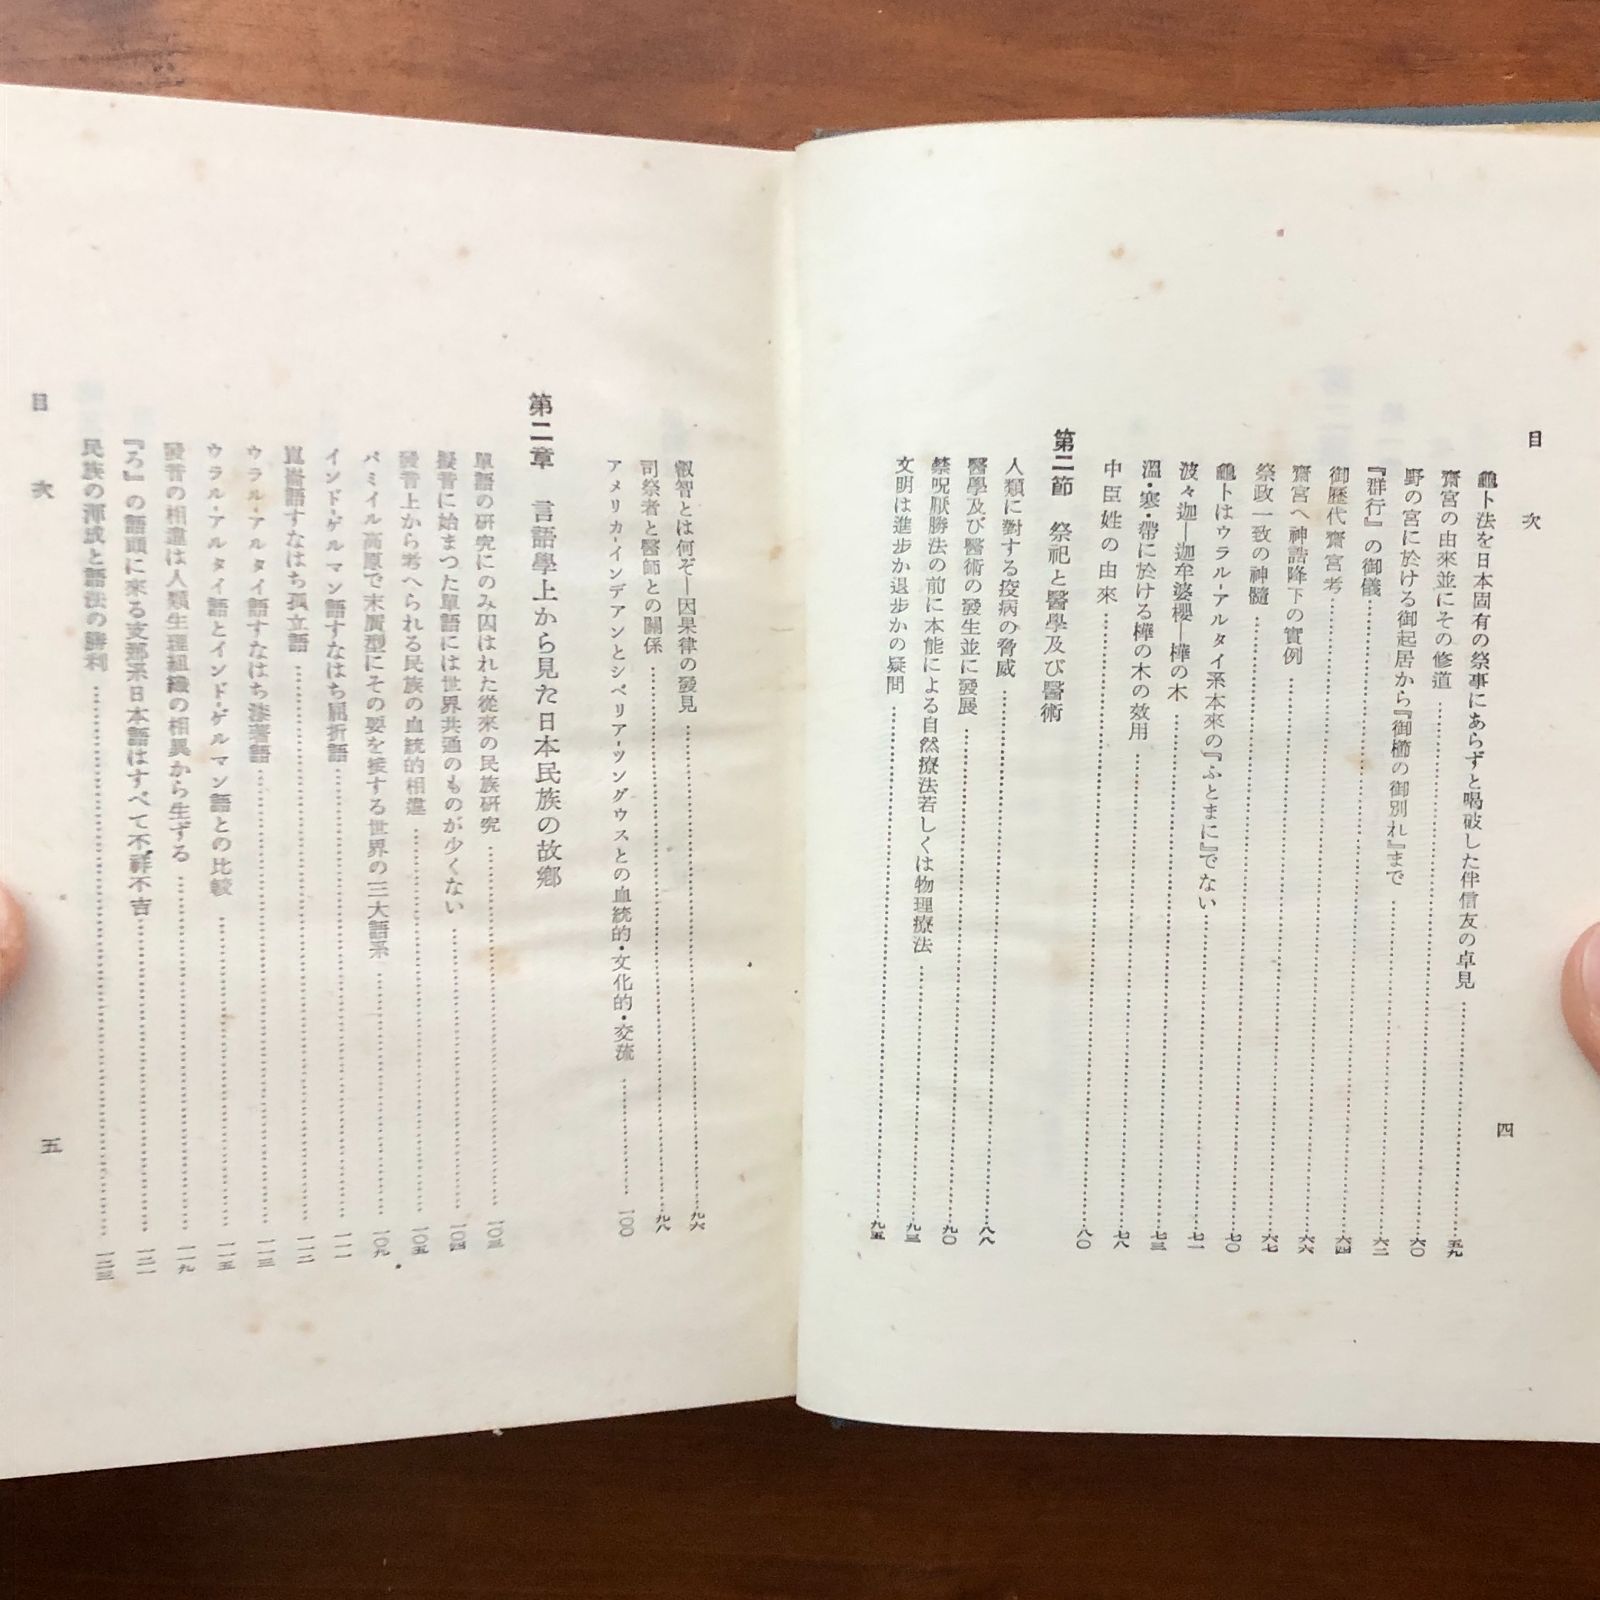 目次
龜卜法を日本固有の祭事にあらずと喝破した伴信友の卓見……五九
齋宮の由來並にその修道……六〇
野の宮に於ける御起居から『御櫛の御別れ』まで……六二
『群行』の御儀……六四
御歷代齋宮考……六六
齋宮へ神誥降下の實例……六六
祭政一致の神髓……六七
龜卜はウラル・アルタイ系本來の『ふとまに』でない……七〇
波々迦—迦牟婆櫻—樺の木……七一
溫・寒・帶に於ける樺の木の效用……七三
中臣姓の由來……七八
第二節 祭祀と醫學及び醫術……八〇
人類に對する疫病の脅威……八八
醫學及び醫術の發生並に發展……九〇
禁呪厭勝法の前に本能による自然療法若しくは物理療法……九三
文明は進步か退步かの疑問……九五
四
叡智とは何ぞ—因果律の發見……九六
司祭者と醫師との關係……九八
アメリカ-インデアンとシベリア-ツングウスとの血統的・文化的・交流……一〇〇
第二章 言語學上から見た日本民族の故鄕
單語の研究にのみ囚はれた從來の民族研究……一〇三
擬音に始まつた單語には世界共通のものが少くない……一〇四
發音上から考へられる民族の血統的相違……一〇五
パミイル高原で末廣型にその要を接する世界の三大語系……一〇九
インド-ゲルマン語すなはち屈折語……一一一
崑崙語すなはち孤立語……一一二
ウラル・アルタイ語すなはち漆着語……一一三
ウラル・アルタイ語とインド-ゲルマン語との比較……一一五
發音の相違は人類生理組織の相異から生ずる……一一九
『ろ』の語頭に來る支那系日本語はすべて不祥不吉……一二一
民族の渾成と語法の勝利……一二三
目次
五